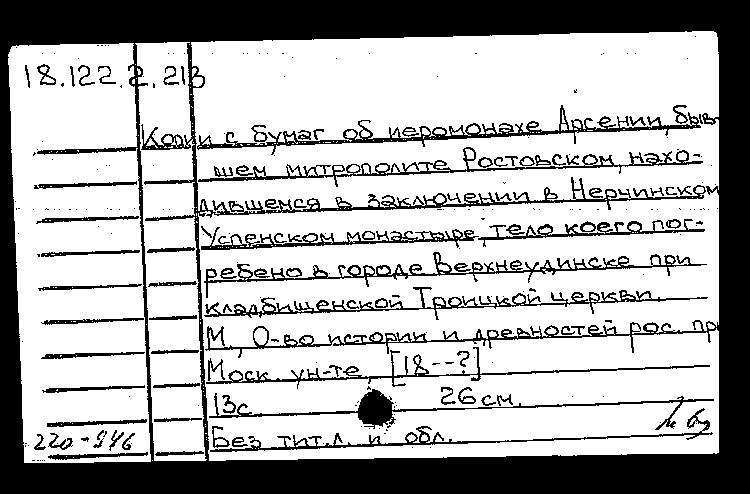 18.122.2.213
Копии с бумаг об иеромонахе Арсении, быв-
шем митрополите Ростовском, нахо-
дившемся в заключении в Нерчинском
Успенском монастыре, тело коего пог-
ребено в городе Верхнеудинске при
кладбищенской Троицкой церкви.
М., О-во истории и древностей рос. при
Моск. ун-те, [18--?]
13с. 26см.
220-846 Без тит.л. и обл.